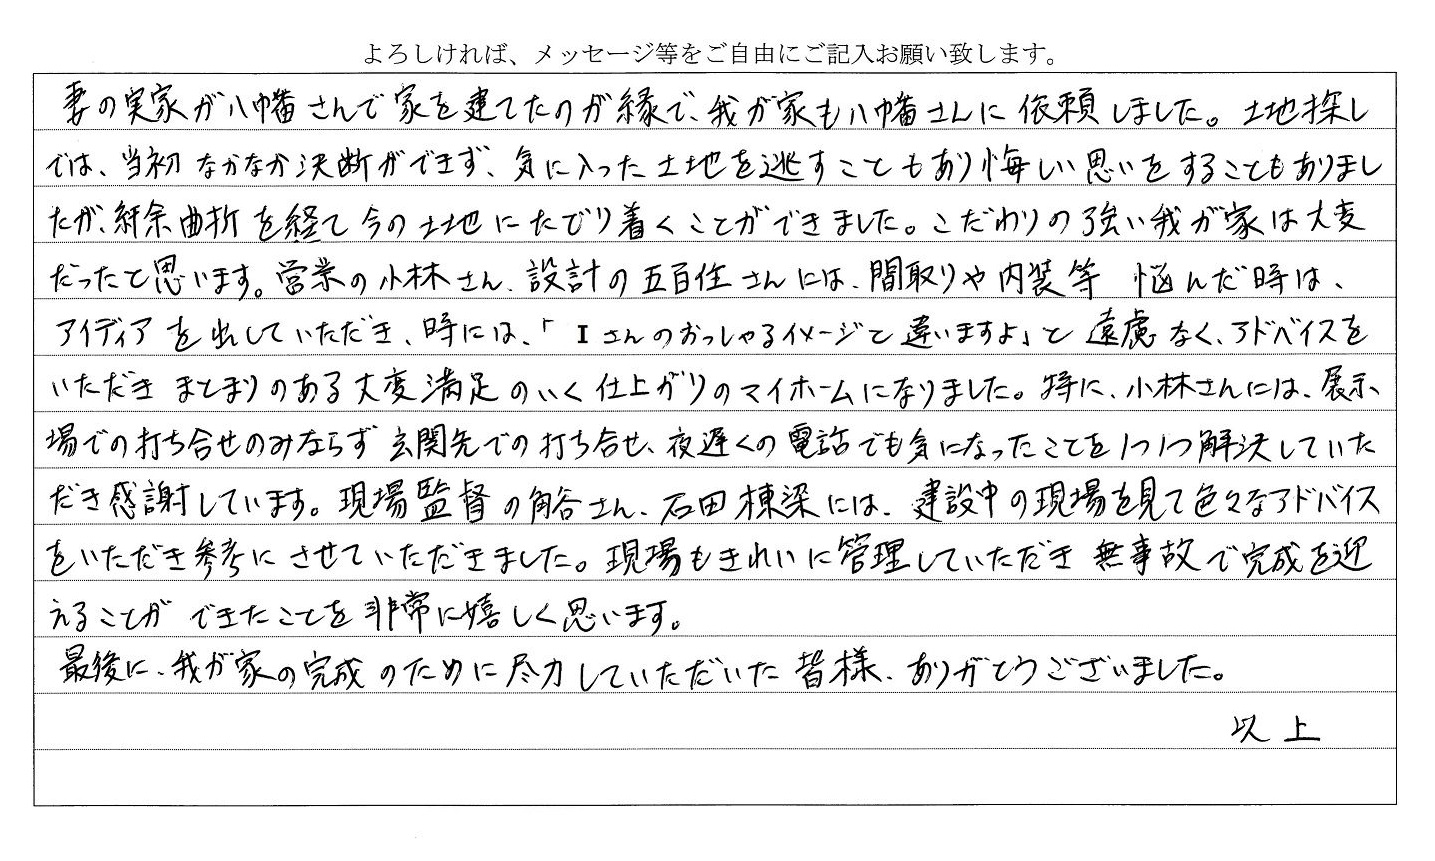 よろしければ、メッセージ等をご自由にご記入お願い致します。
妻の実家が八幡さんで家を建てたのが縁で、我が家も八幡さんに依頼しました。土地探し
では、当初なかなか決断ができず、気に入った土地を逃すこともあり悔しい思いをすることもありまし
たが、紆余曲折を経て今の土地にたどり着くことができました。こだわりの強い我が家は大変
だったと思います。営業の小林さん、設計の五百住さんには、間取りや内装等 悩んだ時は、
アイディアを出していただき、時には、「Iさんのおっしゃるイメージと違いますよ」と遠慮なく、アドバイスを
いただき まとまりのある大変満足のいく仕上がりのマイホームになりました。特に、小林さんには、展示
場での打ち合せのみならず 玄関先での打ち合せ、夜遅くの電話でも気になったことを1つ1つ解決していた
だき感謝しています。現場監督の角谷さん、石田棟梁には、建設中の現場を見て色々なアドバイス
をいただき参考にさせていただきました。現場もきれいに管理していただき 無事故で完成を迎
えることができたことを非常に嬉しく思います。
最後に、我が家の完成のために尽力していただいた皆様、ありがとうございました。
以上